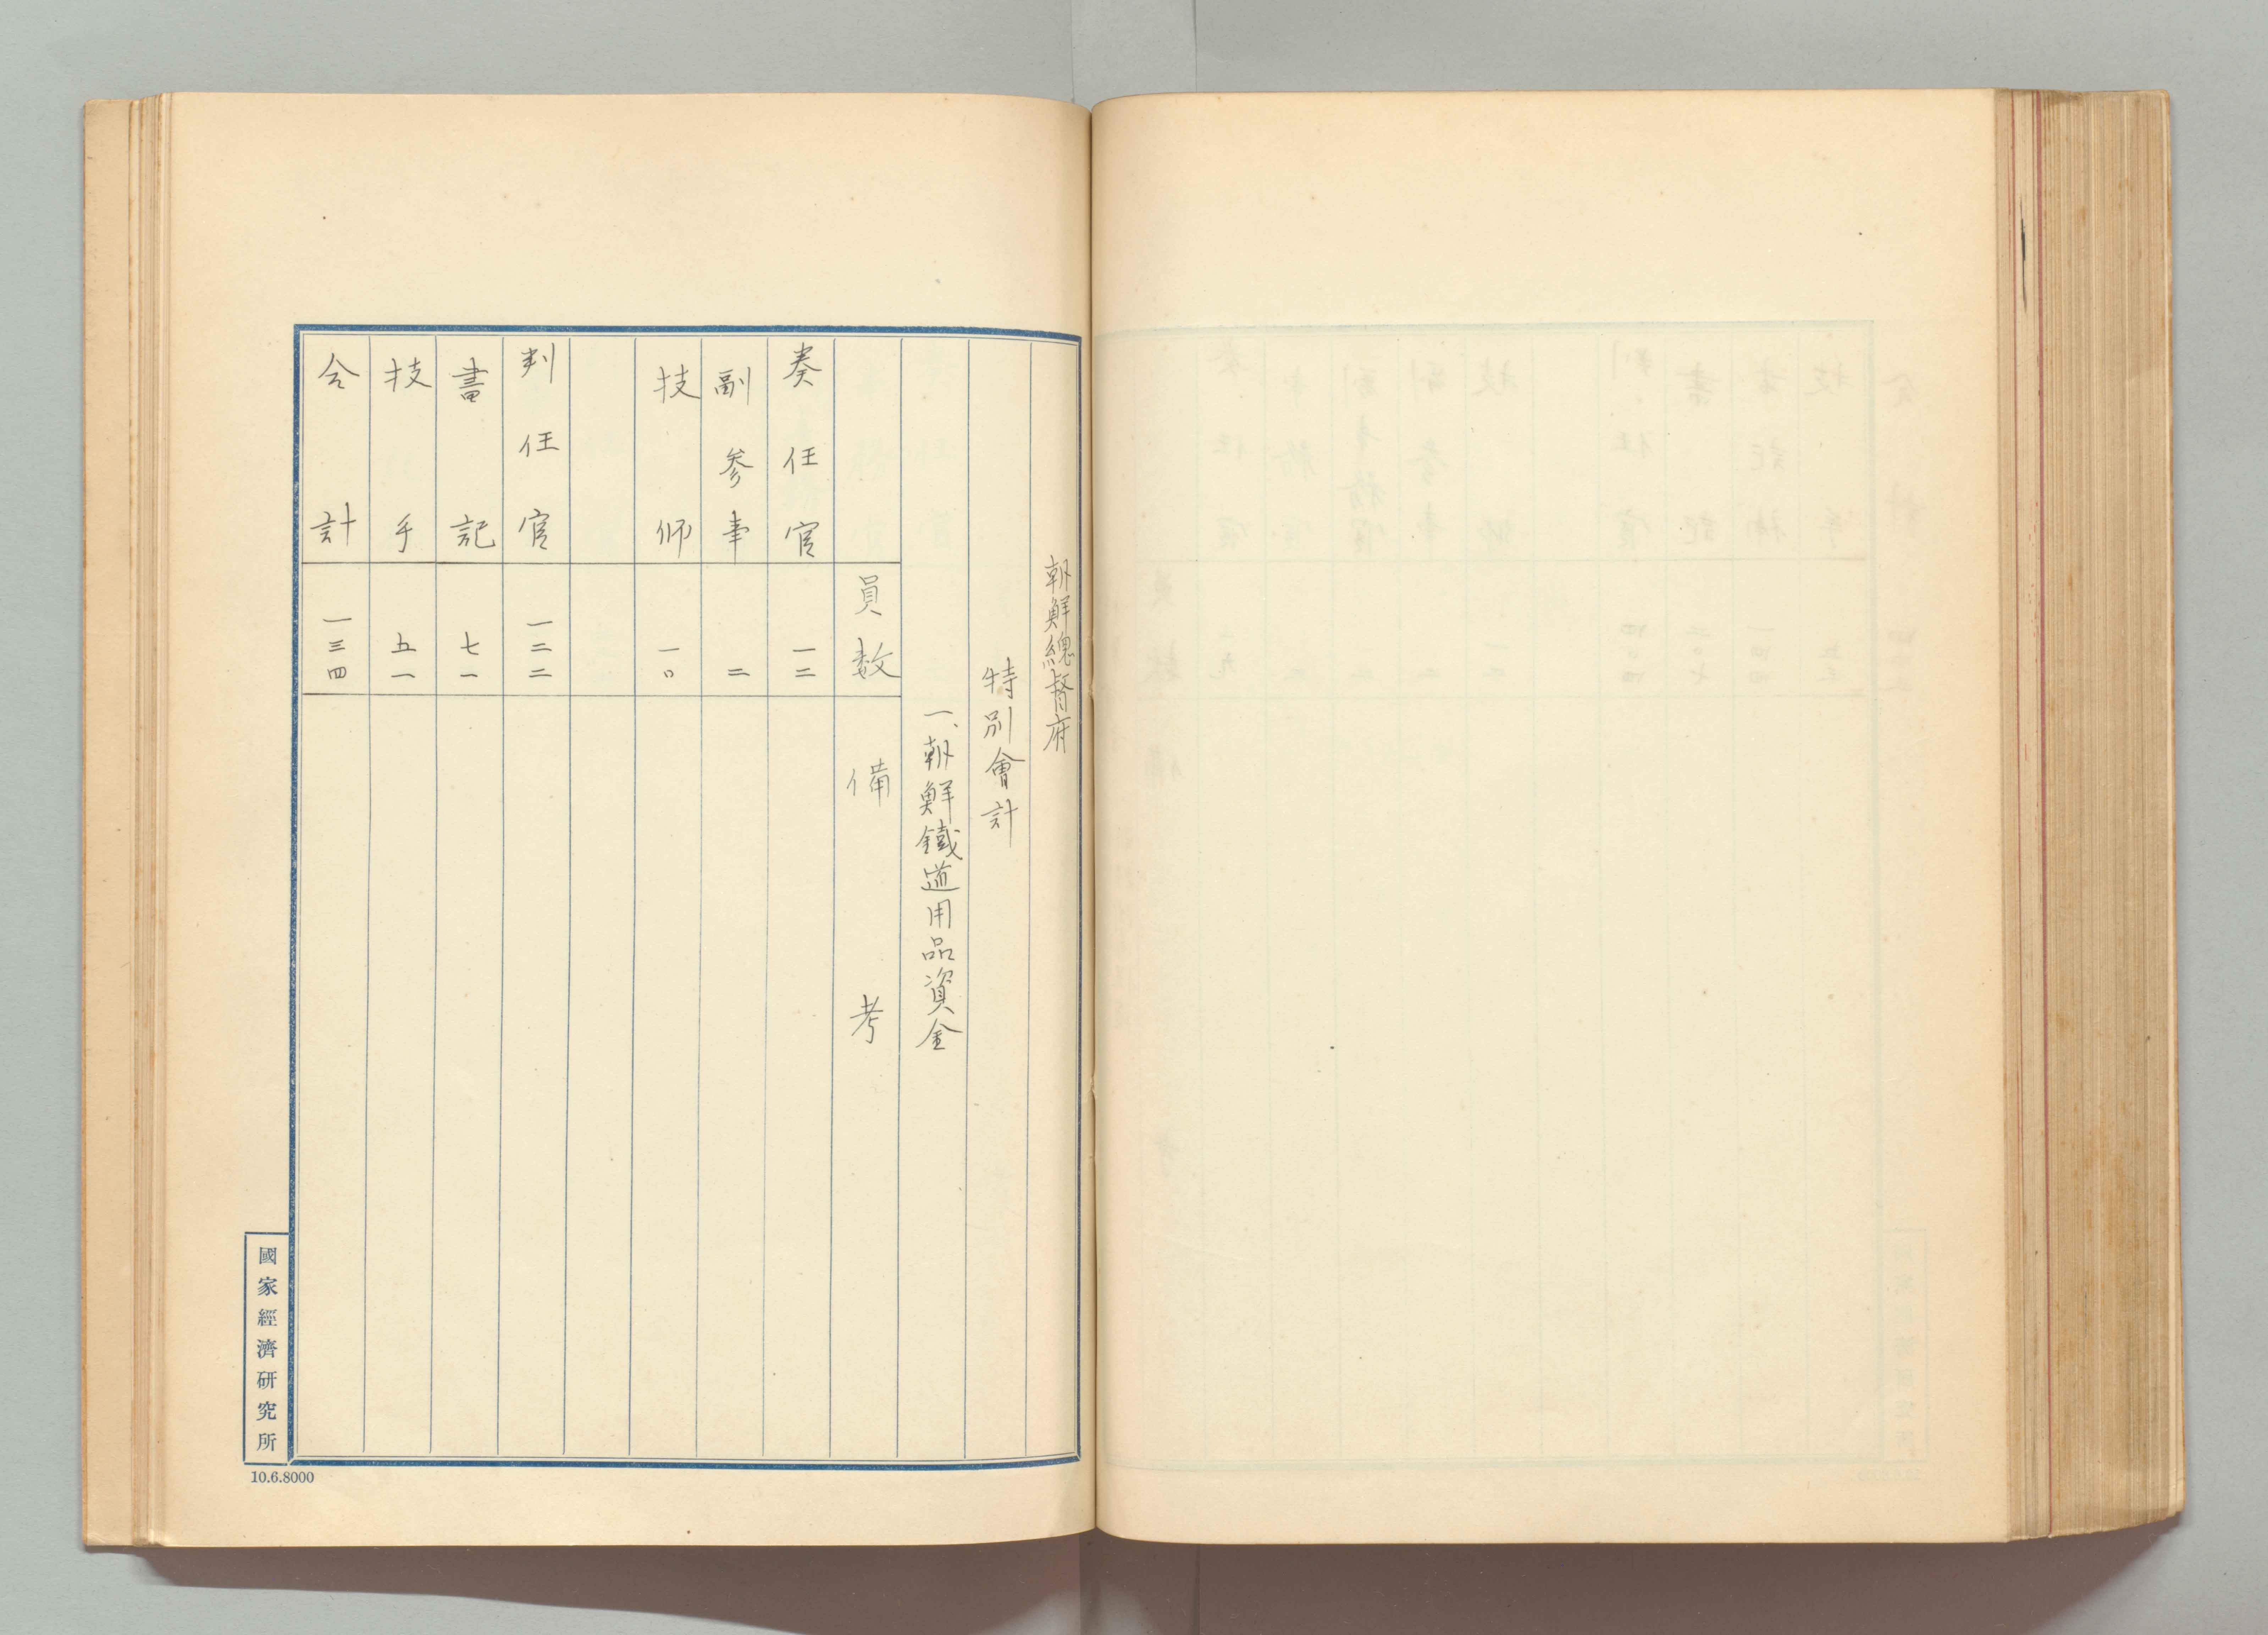 朝鮮總督府
特別會計
一、朝鮮鐵道用品資金
員数 備考
奏任官 一二
副参事 二
技師 一〇
判任官 一二二
書記 七一
技手 五一
合計 一三四
國家經濟研究所
10.6.8000